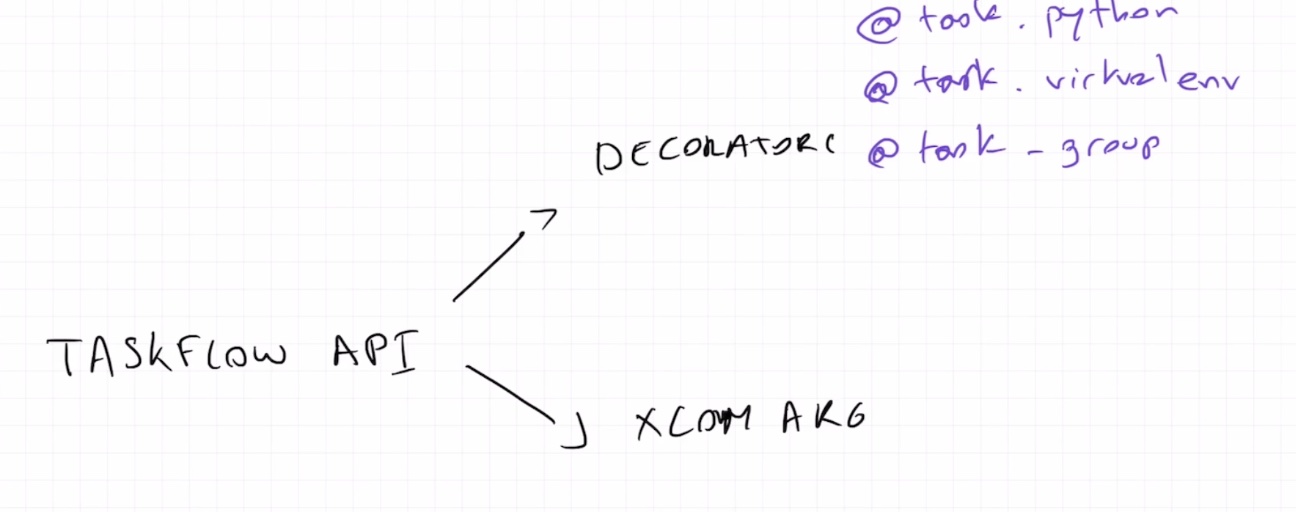 @ task. python
@ task. virtualenv
DECORATORS @ task_group
TASKFLOW API
XCOM ARG